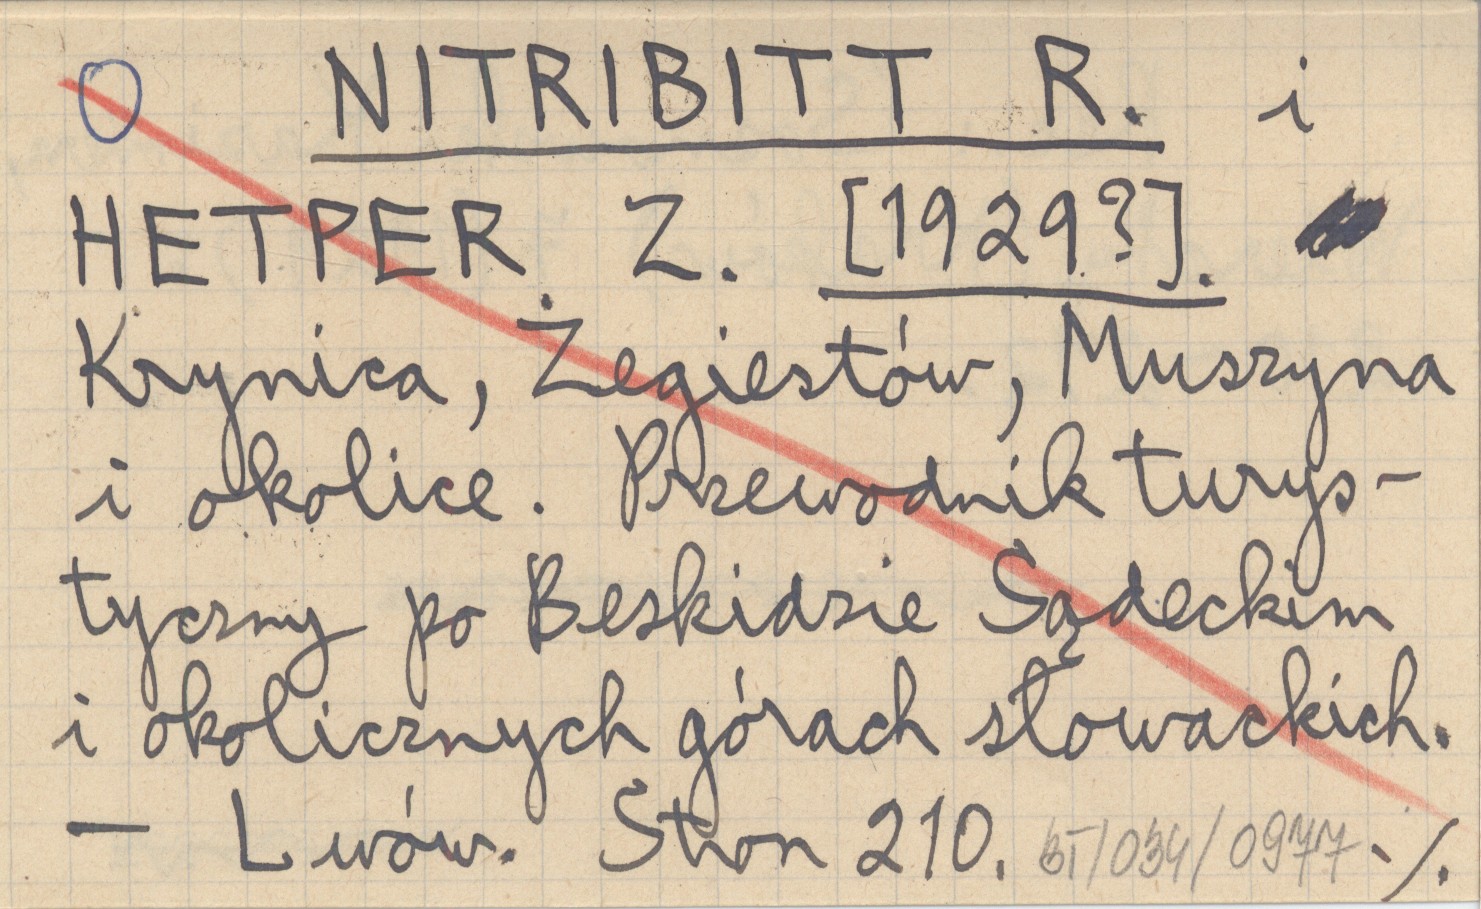 NITRIBITT R. i
HETPER Z. [1929?].
Krynica, Żegiestów, Muszyna
i okolice. Przewodnik turys-
tyczny po Beskidzie Sądeckim
i okolicznych górach słowackich.
— Lwów. Stron 210. BT/034/0977 ./.